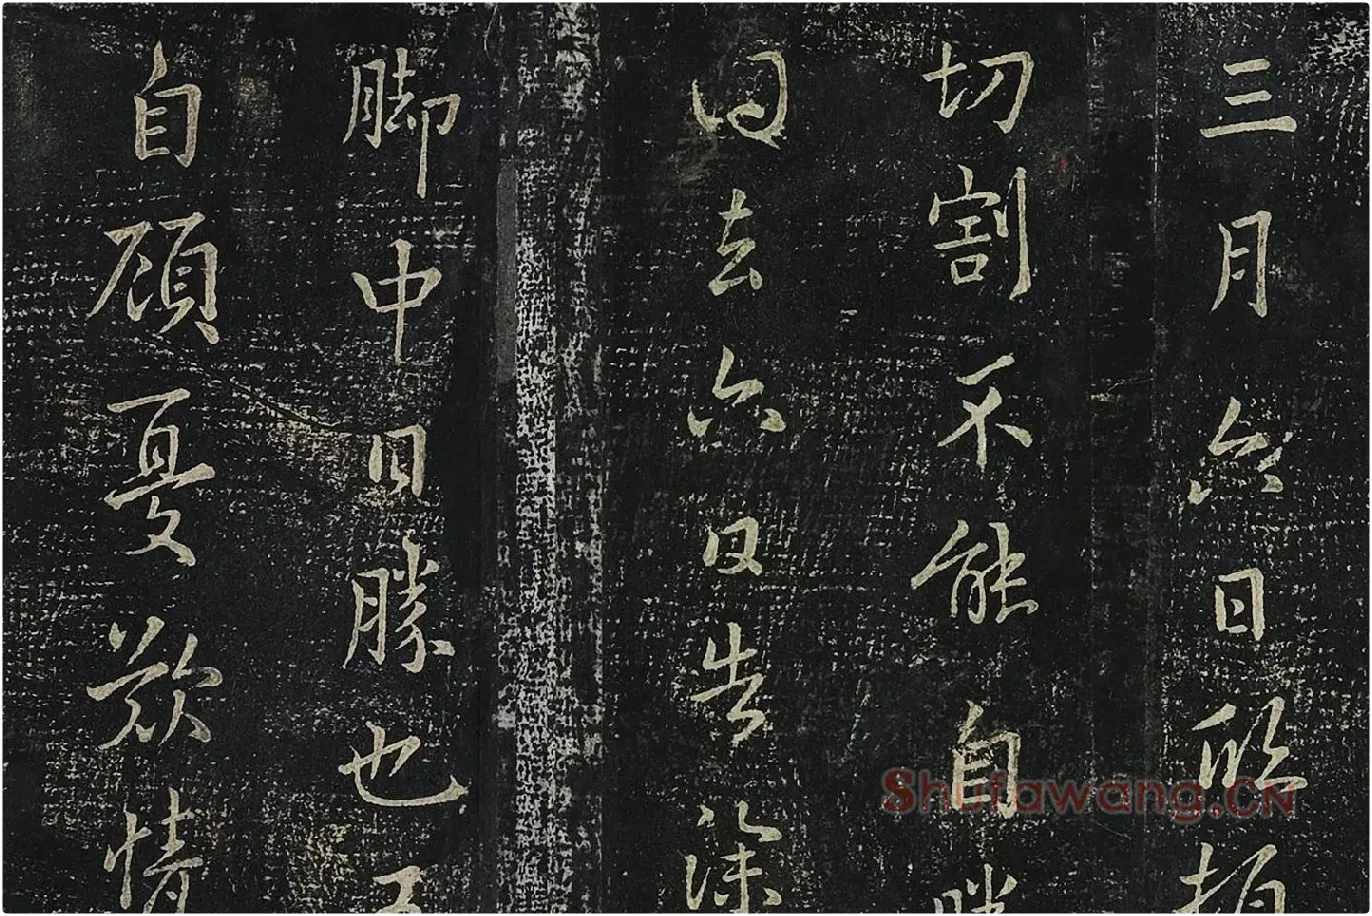 三月六日
切割不能自
同去六日告深
脚中日勝也
自顧憂歎情
Shufawang.CN